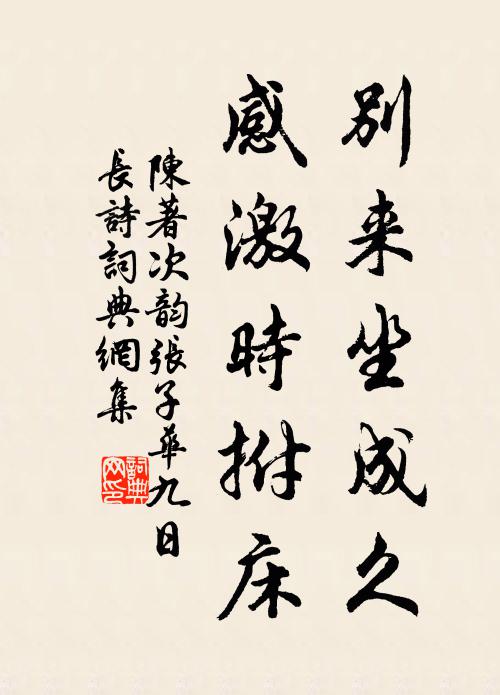 別来坐成久
感激時拊床
陳著次韵張子華九日
長詩詞典網集
詞典网印